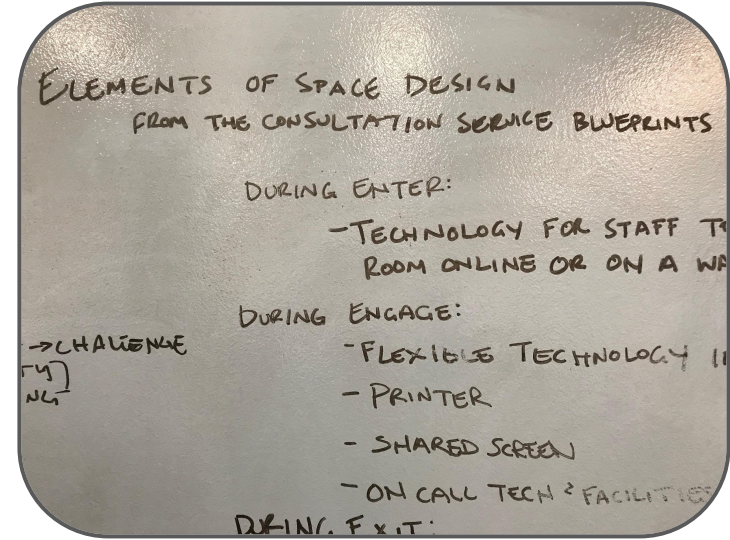 ELEMENTS OF SPACE DESIGN
FROM THE CONSULTATION SERVICE BLUEPRINTS
DURING ENTER:
- TECHNOLOGY FOR STAFF
ROOM ONLINE OR ON A
DURING ENGAGE:
- FLEXIBLE TECHNOLOGY
- PRINTER
- SHARED SCREEN
- ON CALL TECH & FACILITIES
DURING EXIT:
→CHALLENGE